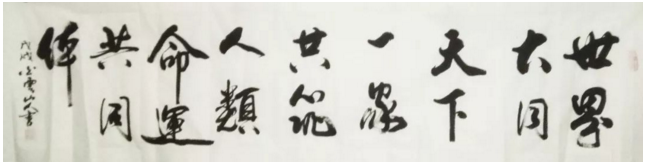 世界
大同
天下
一家
共筑
人類
命運
共同
体
戊戌